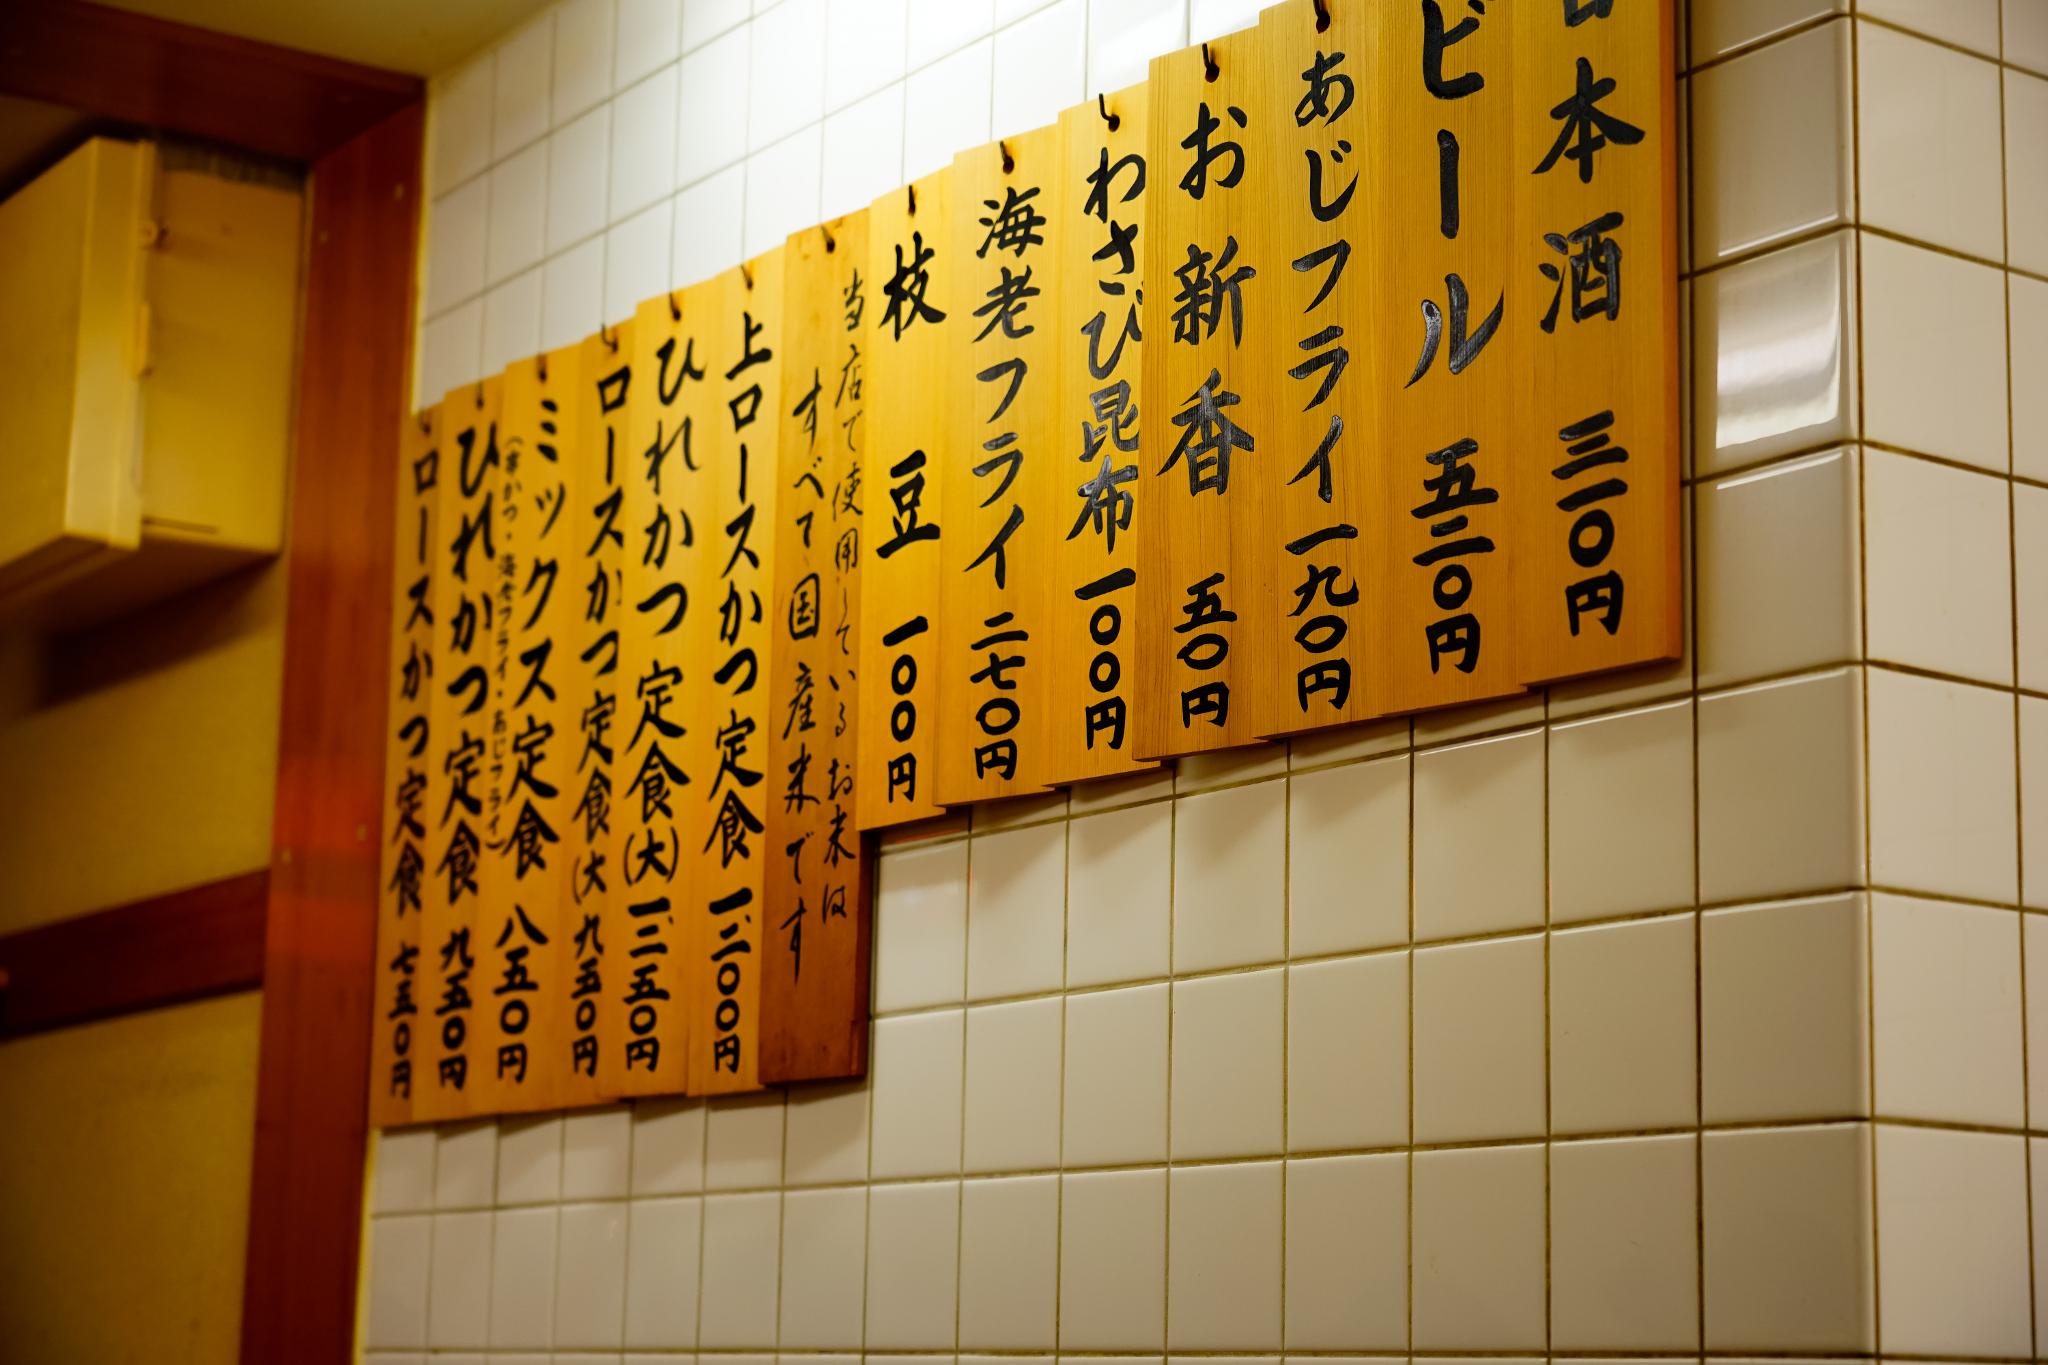 本酒 三一〇円
ビール 五二〇円
あじフライ 一九〇円
お新香 五〇円
わさび昆布 一〇〇円
海老フライ 二七〇円
枝豆 一〇〇円
当店で使用しているお米は
すべて国産米です
上ロースかつ定食 一、二〇〇円
ひれかつ定食(大) 一、二五〇円
ロースかつ定食(大 九五〇円
ミックス定食 八五〇円
(串かつ・海老フライ・あじフライ)
ひれかつ定食 九五〇円
ロースかつ定食 七五〇円